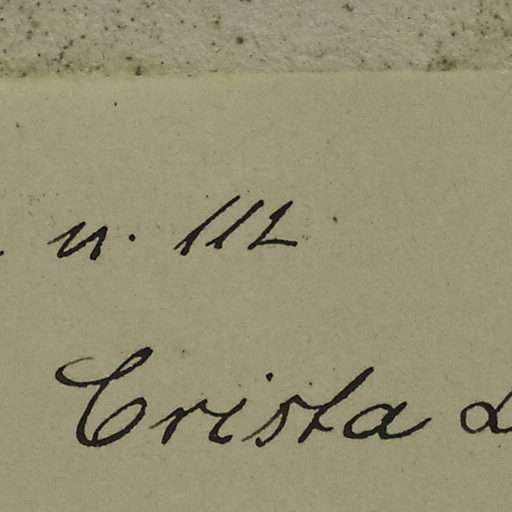 n. 112
Crista